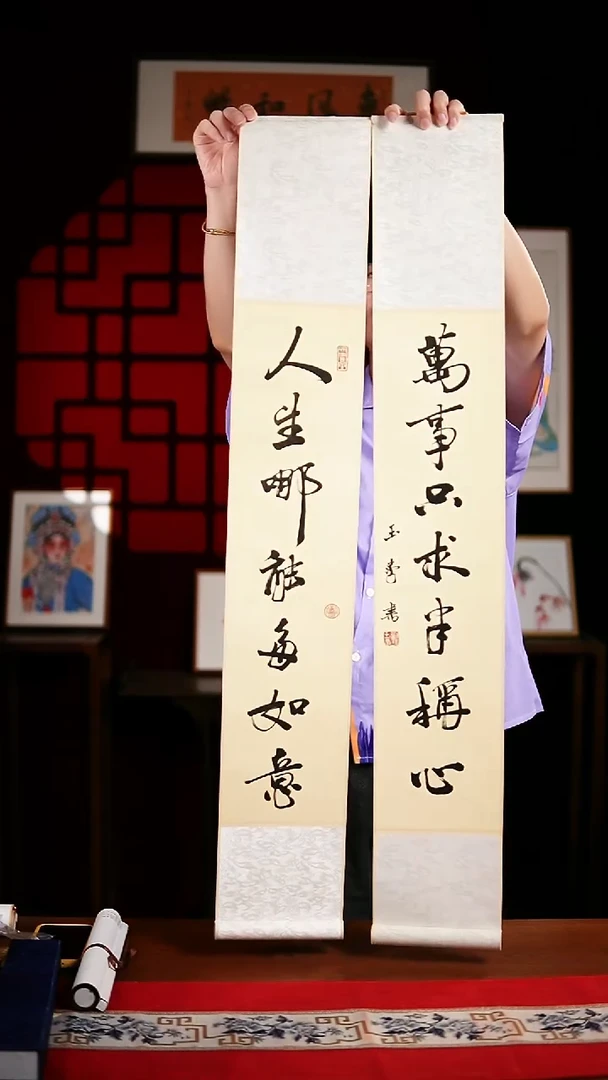 惠風和暢
人生哪能多如意
萬事只求半稱心
玉書